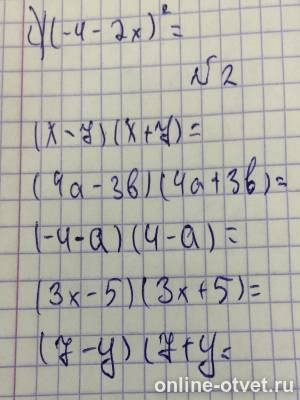 1)(-4-2x)²=
№2
(x-7)(x+7)=
(4a-3в)(4a+3в)=
(-4-a)(4-a)=
(3x-5)(3x+5)=
(7-y)(7+y=
online-otvet.ru